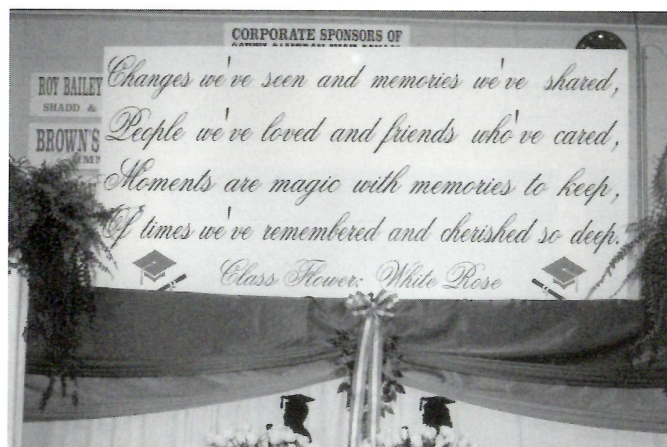 CORPORATE SPONSORS OF
ROY BAILEY
SHADD &
BROWN'S
Changes we've seen and memories we've shared,
People we've loved and friends who've cared,
Moments are magic with memories to keep,
Of times we've remembered and cherished so deep.
Class Flower: White Rose